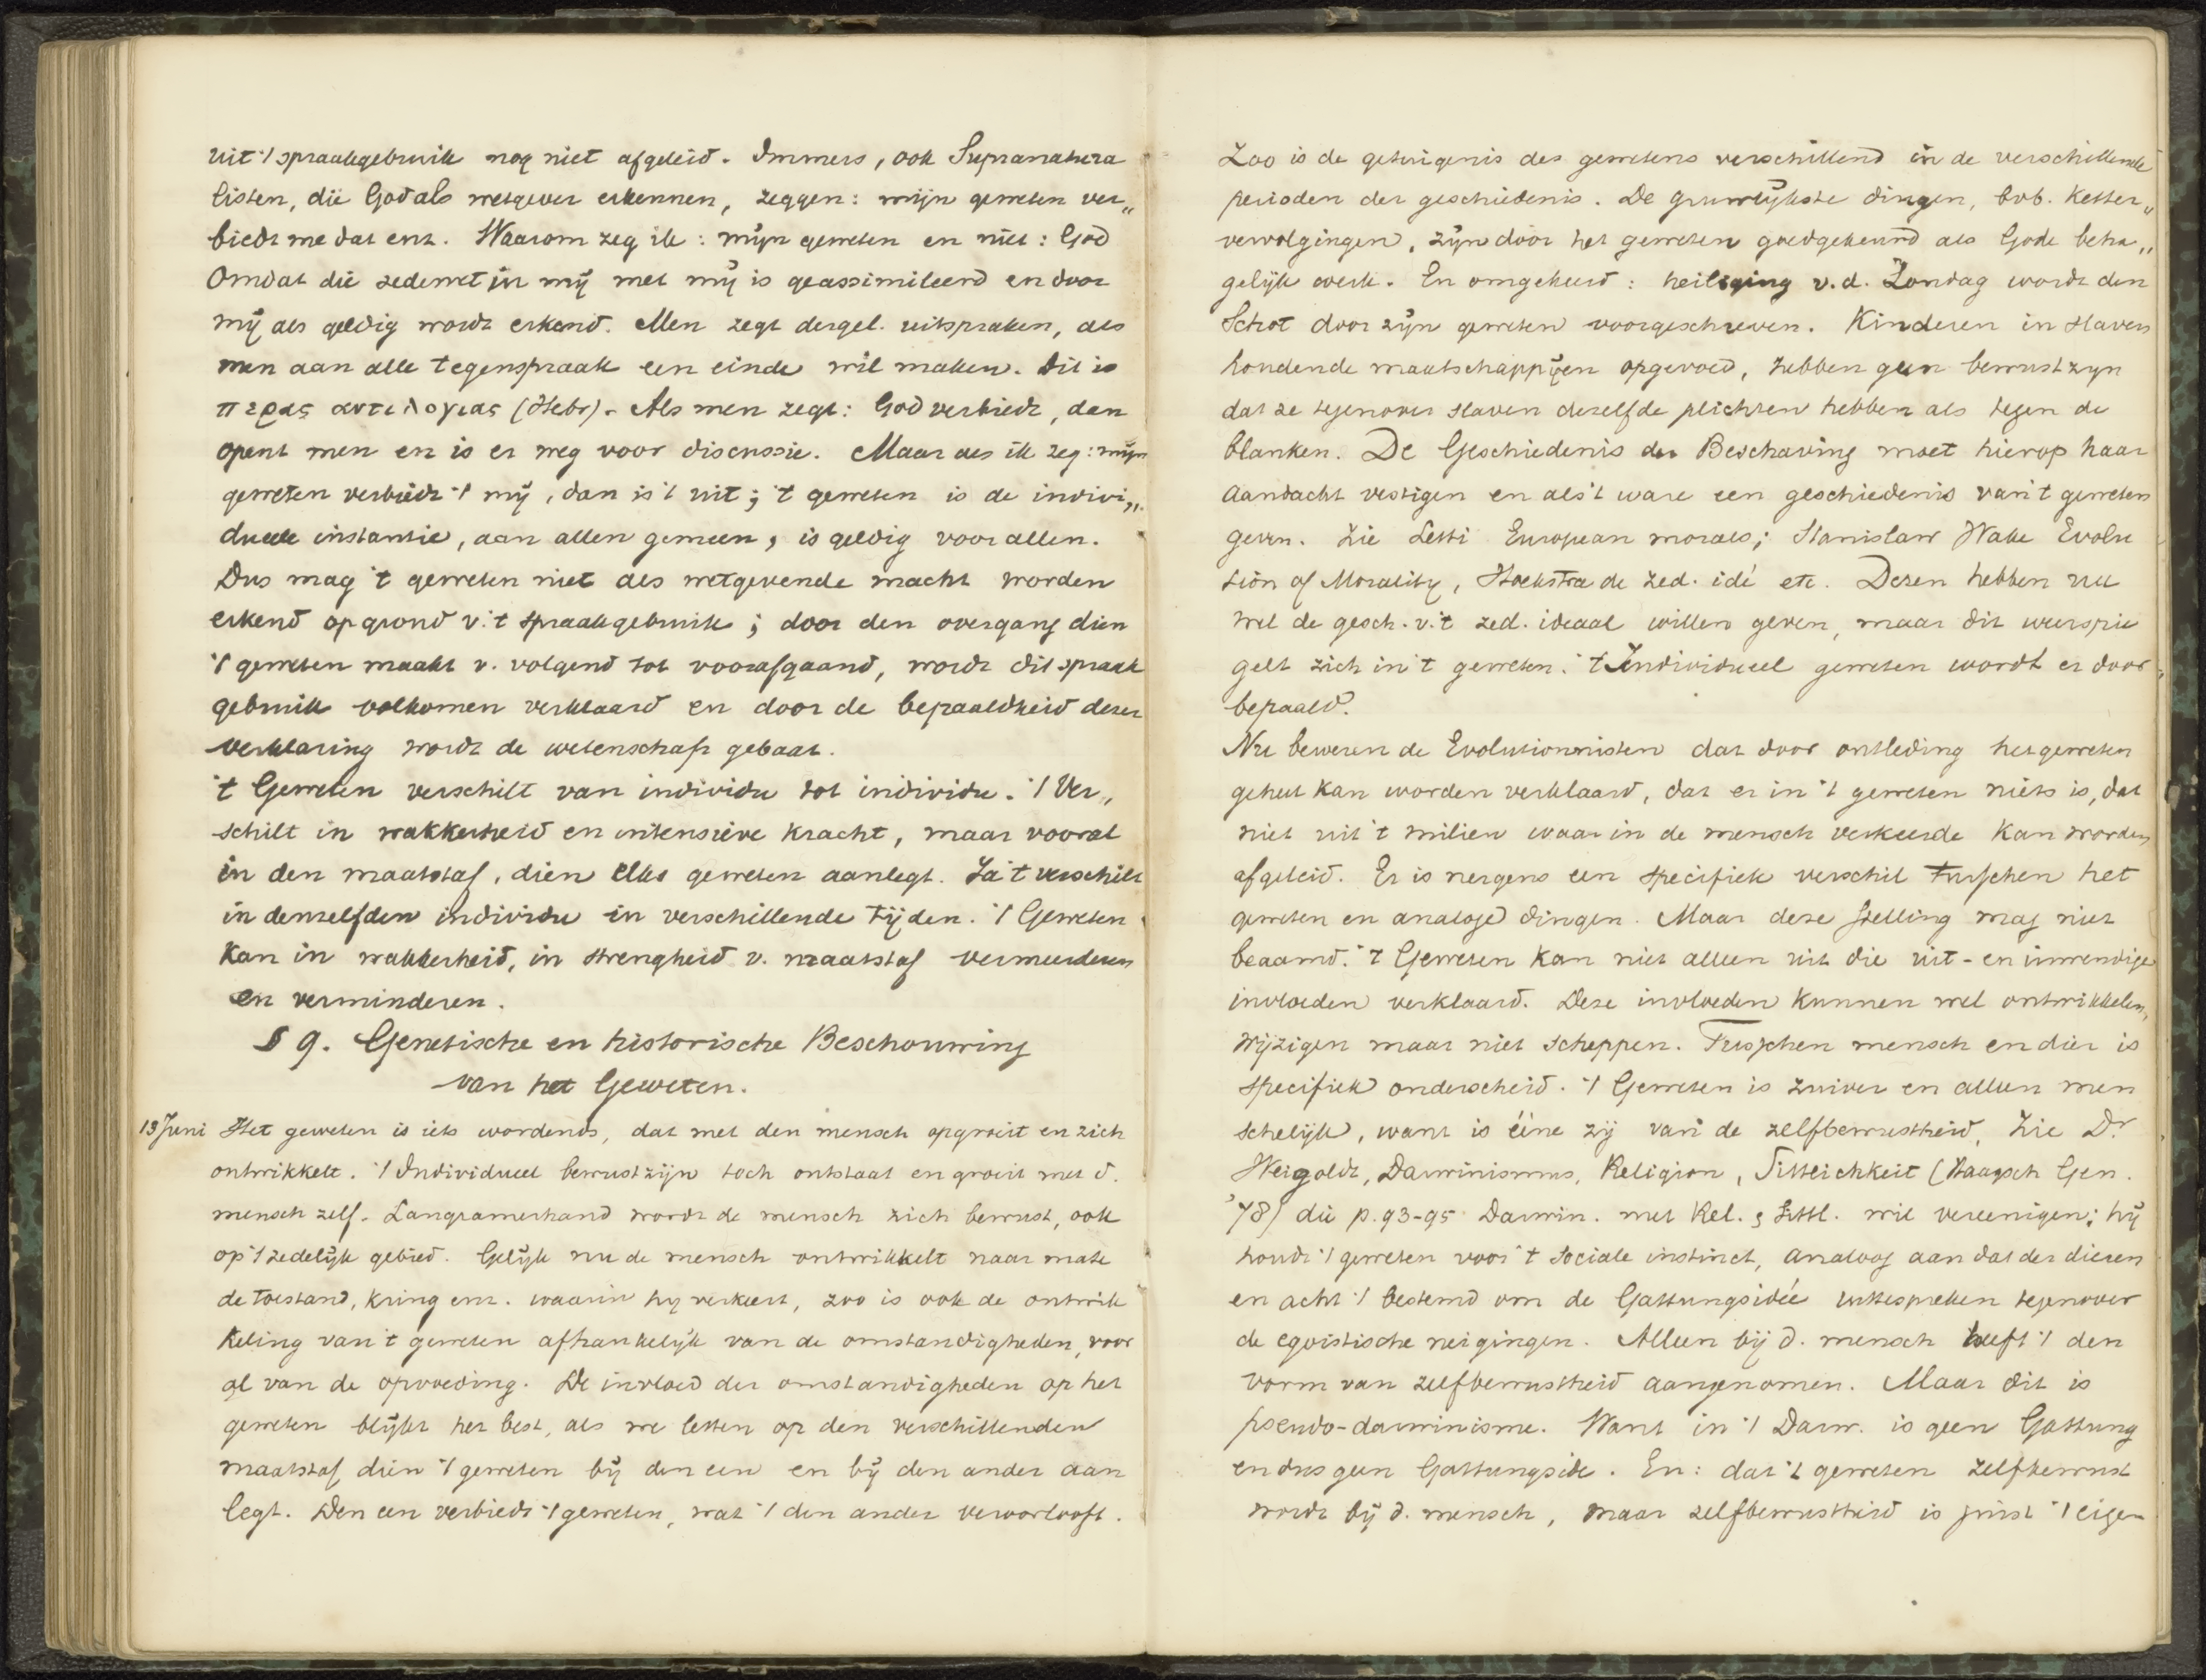 uit 't spraakgebruik nog niet afgeleid. Immers, ook Supranatura
listen, die God als wetgever erkennen, zeggen: mijn geweten ver„
biedt me dat enz. Waarom zeg ik: mijn geweten en niet: God
Omdat die zedewet in mij met mij is geassimileerd en door
mij als geldig wordt erkend. Men zegt dergel. uitspraken, als
men aan alle tegenspraak een einde wil maken. Dit is
περας αντιλογιας (Hebr). Als men zegt: God verbiedt, dan
opent men en is er weg voor discussie. Maar als ik zeg: mijn
geweten verbiedt 't mij, dan is 't uit; 't geweten is de indivi„
dueele instantie, aan allen gemeen, is geldig voor allen.
Dus mag 't geweten niet als wetgevende macht worden
erkend op grond v. 't spraakgebruik; door den overgang dien
't geweten maakt v. volgend tot voorafgaand, wordt dit spraak
gebruik volkomen verklaard en door de bepaaldheid dezer
verklaring wordt de wetenschap gebaat.
't Geweten verschilt van individu tot individu. 't Ver„
schilt in wakkerheid en intensieve kracht, maar vooral
in den maatstaf, dien elks geweten aanlegt. Ja 't verschilt
in denzelfden individu in verschillende tijden. 't Geweten
kan in wakkerheid, in strengheid v. maatstaf vermeerderen
en verminderen.
§ 9. Genetische en historische Beschouwing
van het Geweten.
13 Juni Het geweten is iets wordends, dat met den mensch opgroeit en zich
ontwikkelt. 't Individueel bewustzijn toch ontstaat en groeit met d.
mensch zelf. Langzamerhand wordt de mensch zich bewust, ook
op 't zedelijk gebied. Gelijk nu de mensch ontwikkelt naar mate
de toestand, kring enz. waarin hij verkeert, zoo is ook de ontwik
keling van 't geweten afhankelijk van de omstandigheden, voor
al van de opvoeding. De invloed der omstandigheden op het
geweten blijkt het best, als we letten op den verschillenden
maatstaf, dien 't geweten bij den een en bij den ander aan
legt. Den een verbiedt 't geweten, wat 't den ander veroorlooft.
Zoo is de getuigenis des gewetens verschillend in de verschillende
perioden der geschiedenis. De gruwelijkste dingen, bvb. ketter„
vervolgingen, zijn door het geweten goedgekeurd als Gode beha„
gelijk werk. En omgekeerd: heiliging v.d. Zondag wordt den
Schot door zijn geweten voorgeschreven. Kinderen in slaven
houdende maatschappijen opgevoed, hebben geen bewustzijn
dat ze tegenover slaven dezelfde plichten hebben als tegen de
blanken. De Geschiedenis der Beschaving moet hierop haar
aandacht vestigen en als 't ware een geschiedenis van 't geweten
geven. Zie Letti European morals; Stanislaw Wake Evolu
tion of Morality, Hoekstra de zed. idé etc. Dezen hebben nu
wel de gesch. v. 't zed. ideaal willen geven, maar dit weerspie
gelt zich in 't geweten. 't Individueel geweten wordt er door
bepaald.
Nu beweren de Evolutionnisten dat door ontleding het geweten
geheel kan worden verklaard, dat er in 't geweten niets is, dat
niet uit 't milieu waarin de mensch verkeerde kan worden
afgeleid. Er is nergens een specifiek verschil tusschen het
geweten en analoge dingen. Maar deze stelling mag niet
beaamd. 't Geweten kan niet alleen uit die uit- en inwendige
invloeden verklaard. Deze invloeden kunnen wel ontwikkelen,
wijzigen maar niet scheppen. Tusschen mensch en dier is
specifiek onderscheid. 't Geweten is zuiver en alleen men
schelijk, want is ééne zij van de zelfbewustheid. Zie Dr
Weigoldt, Darwinismus, Religion, Sittlichkeit (Haagsch Gen.
'78) die p. 93-95 Darwin. met Rel. & Sittl. wil vereenigen; hij
houdt 't geweten voor 't sociale instinct, analoog aan dat der dieren
en acht 't bestemd om de Gattungsidée uittespreken tegenover
de egoistische neigingen. Alleen bij d. mensch heeft 't den
vorm van zelfbewustheid aangenomen. Maar dit is
pseudo-darwinisme. Want in 't Darw. is geen Gattung
en dus geen Gattungsidee. En: dat 't geweten zelfbewust
wordt bij d. mensch, maar zelfbewustheid is juist 't eigen